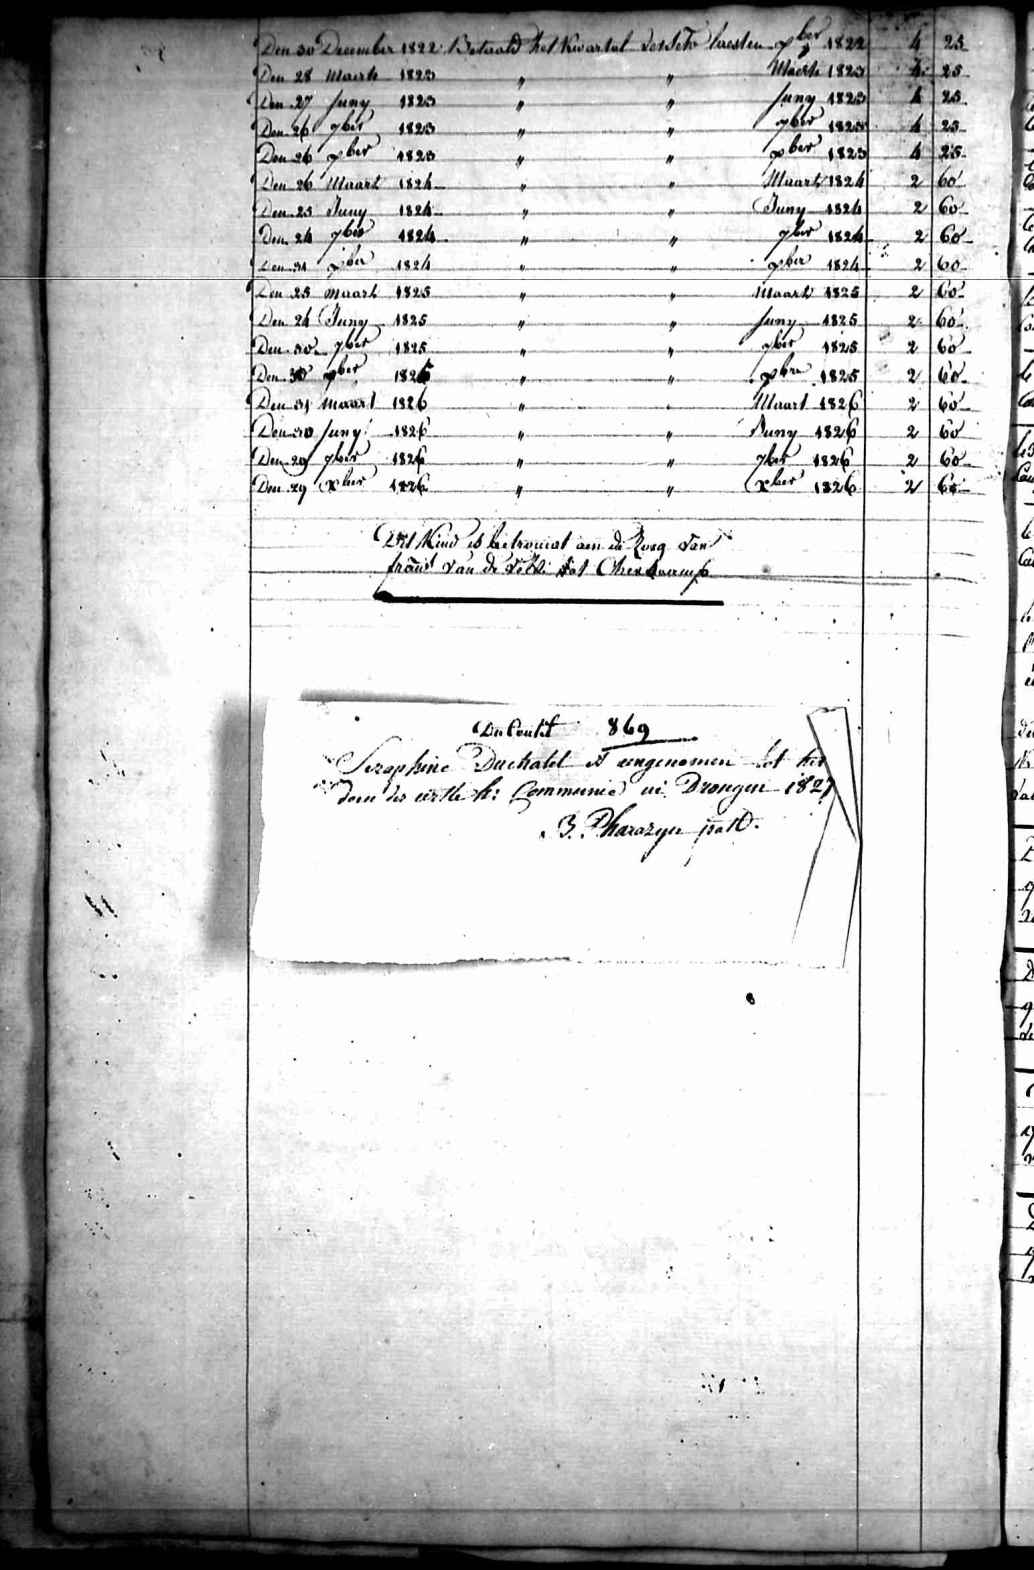 Den 30 December 1822 Betaald het Kwartal laesten xber 1822 4 25
Den 28 Maert 1823 " " Maert 1823 4 25
Den 27 Juny 1823 " " Juny 1823 4 25
Den 26 7ber 1823 " " 7ber 1823 4 25
Den 26 xber 1823 " " xber 1823 4 25
Den 26 Maart 1824 " " Maart 1824 2 60
Den 25 Juny 1824 " " Juny 1824 2 60
Den 24 7ber 1824 " " 7ber 1824 2 60
Den 31 xber 1824 " " xber 1824 2 60
Den 25 Maart 1825 " " Maart 1825 2 60
Den 24 Juny 1825 " " Juny 1825 2 60
Den 30 7ber 1825 " " 7ber 1825 2 60
Den 30 xber 1825 " " xbre 1825 2 60
Den 31 Maart 1826 " " Maart 1826 2 60
Den 30 Juny 1826 " " Juny 1826 2 60
Den 29 7ber 1826 " " 7ber 1826 2 60
Den 29 xber 1826 " " xber 1826 2 60
Dit Kind is betrouwt aen de Zorg van
frans van de tot
869
Seraphine Duchatel is angenomen tot het
doen der eerste h: Communie in Drongen 1827
B. Pharazyn